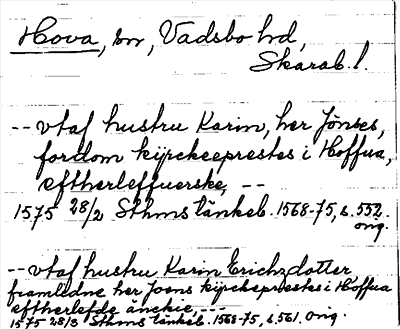 Hova, sn, Vadsbo hd,
Skarab. l.
-- vtaf hustru Karin, her Jönses,
fordom kijrckeeprestes i Hoffua,
efftherleffuerske, --
1575 28/2 Sthms tänkeb. 1568-75, s. 552.
orig.
-- vtaf hustru Karin Erichzdotter
framledne her Joens kijrckeprestes i Hoffua
efftherlefde änckie, ---
1575 28/3 Sthms tänkeb. 1568-75, s. 561. orig.